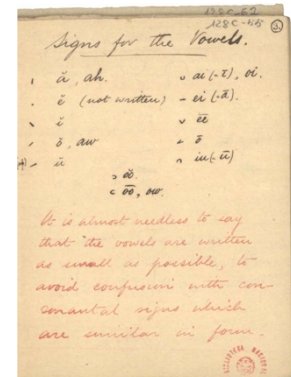 128C-62
128C-55
Signs for the Vowels.
ı ă, ah.
ᴗ ai (-ī), oi.
ˎ ĕ (not written)
– ei (-ā).
ı ĭ
ᴗ ēē
ı ŏ, aw
– ō
– ŭ
ᴖ iu (-ū)
ɔ ŏŏ.
c ōō, ow.
It is almost needless to say
that the vowels are written
as small as possible, to
avoid confusion with con-
sonantal signs which
are similar in form.